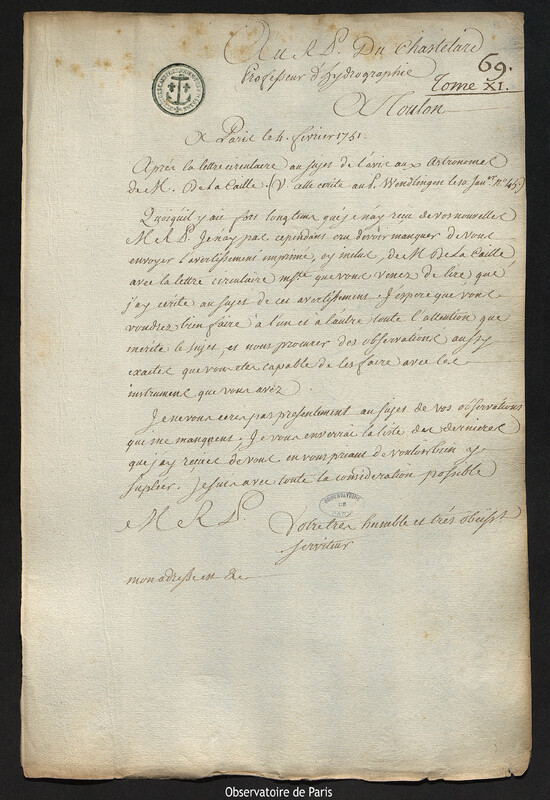 Au R. P. Du Chastelard
69.
Professeur d'hydrographie
Tome XI.
A Toulon
A Paris le 4. fevrier 1751.
Après la lettre circulaire au sujet de l'avis aux Astronomes
de M. De La Caille. (V. celle ecrite au P. Wendlingen le 10 Janer. no. 45.)
Quoiqu'il y aie fort longtems que je n'ay reçu de vos nouvelles
M R P. Je n'ay pas cependant cru devoir manquer de vous
envoyer l'avertissement imprimé, cy inclus, de M De la Caille
avec la lettre circulaire mste. que vous venez de lire que
j'ay ecrite au sujet de ces avertissement. J'espere que vous
voudrez bien faire à l'un et à l'autre toute l'attention que
merite le sujet, et nous procurer des observations aussy
exactes que vous etes capable de les faire avec les
instrument que vous avez.
Je ne vous ecris pas presentement au sujet de vos observations
qui me manquent, Je vous enverrai la liste des dernieres
que j'ay reçues de vous en vous priant de vouloir bien y
supleer. Je suis avec toute la consideration possible
M R P.
Votre tres humble et très obeisst
serviteur
mon adresse est &c
OBSERVATOIRE
DE
PARIS
Observatoire de Paris